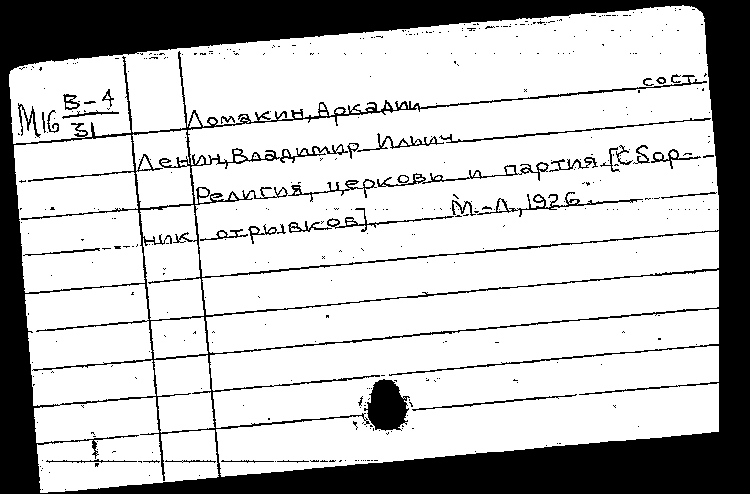 М16 В-4/31
Ломакин, Аркадий сост.
Ленин, Владимир Ильич.
Религия, церковь и партия. [Сбор-
ник отрывков]. М.-Л., 1926.